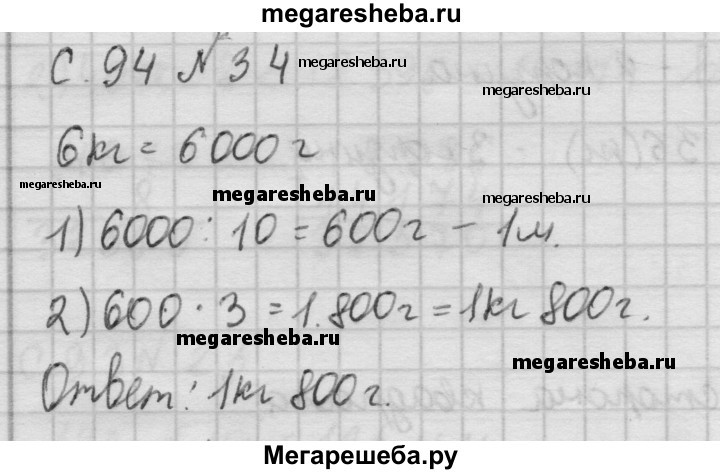 megaresheba.ru
С. 94 № 34
megaresheba.ru
megaresheba.ru
6кг = 6000г
megaresheba.ru
megaresheba.ru
1) 6000 : 10 = 600г - 1м.
2) 600 · 3 = 1.800г = 1кг 800г.
megaresheba.ru
megaresheba.ru
Ответ: 1кг 800г.
Мегарешеба.ру